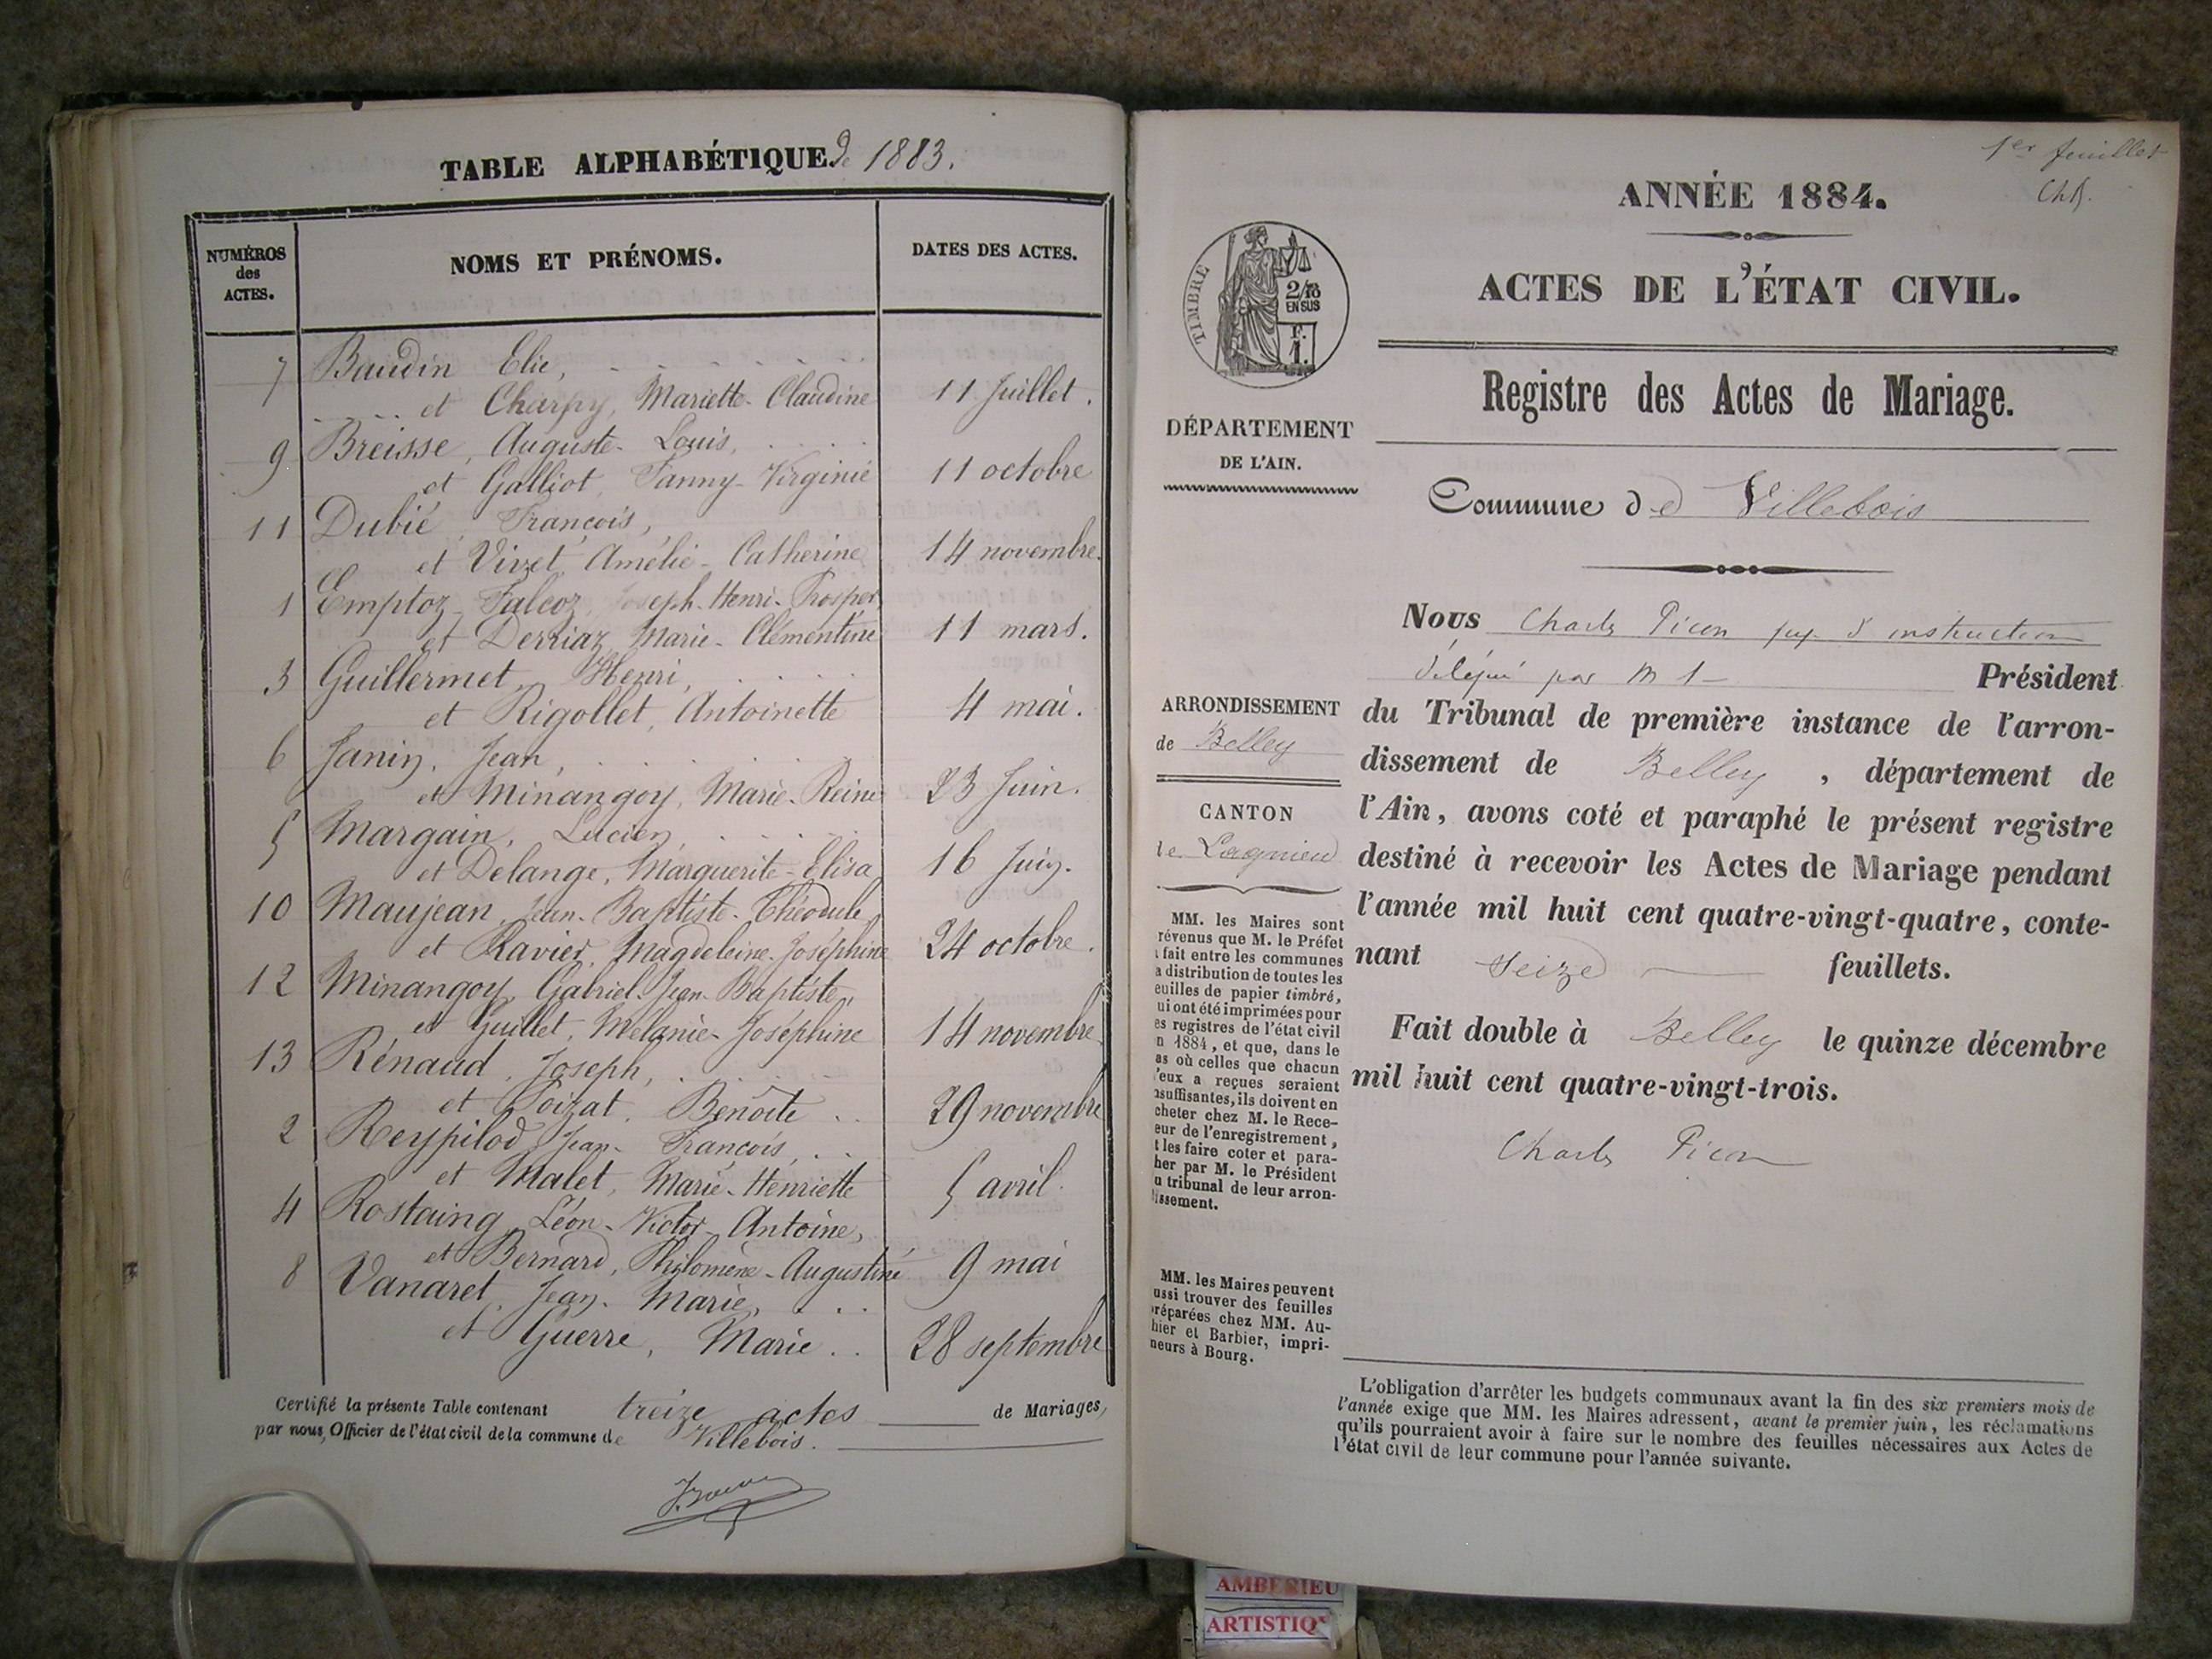 TABLE ALPHABÉTIQUE de 1883.
NUMÉROS
des
ACTES.
NOMS ET PRÉNOMS.
DATES DES ACTES.
7 Baudin Elie,
et Charpy, Mariette-Claudine 11 Juillet.
9 Breisse, Auguste-Louis,
et Galliot, Fanny-Virginie 11 octobre
11 Dubié, François,
et Vizet, Amélie-Catherine 14 novembre.
1 Emptoz-Falcoz, Joseph-Henri-Prosper,
et Derriaz, Marie-Clémentine 11 mars.
3 Guillermet, Henri,
et Rigollet, Antoinette 4 mai.
6 Janin, Jean,
et Minangoy, Marie-Reine 23 Juin.
5 Margain, Lucien,
et Delange, Marguerite-Elisa 16 Juin.
10 Maujean, Jean-Baptiste-Théodule
et Ravier, Magdeleine-Joséphine 24 octobre.
12 Minangoy, Gabriel-Jean-Baptiste,
et Guillet, Mélanie-Joséphine 14 novembre
13 Rénaud, Joseph,
et Poizat, Benoîte 29 novembre
2 Reypilod, Jean-François,
et Malet, Marie-Henriette 5 avril.
4 Rostaing, Léon-Victor-Antoine,
et Bernard, Philomène-Augustine 9 mai
8 Vanaret, Jean-Marie,
et Guerre, Marie 28 septembre
Certifié la présente Table contenant treize actes de Mariages,
par nous, Officier de l'état civil de la commune de Villebois.
1er feuillet
ANNÉE 1884.
TIMBRE
2/10
EN SUS
F.
1.
ACTES DE L'ÉTAT CIVIL.
Registre des Actes de Mariage.
DÉPARTEMENT
DE L'AIN.
Commune de Villebois
Nous Charles Picon juge d'instruction
délégué par M le Président
du Tribunal de première instance de l'arron-
dissement de Belley, département de
l'Ain, avons coté et paraphé le présent registre
destiné à recevoir les Actes de Mariage pendant
l'année mil huit cent quatre-vingt-quatre, conte-
nant seize feuillets.
Fait double à Belley le quinze décembre
mil huit cent quatre-vingt-trois.
Charles Picon
ARRONDISSEMENT
de Belley
CANTON
de Lagnieu
MM. les Maires sont
révenus que M. le Préfet
fait entre les communes
a distribution de toutes les
euilles de papier timbré,
ui ont été imprimées pour
es registres de l'état civil
n 1884, et que, dans le
as où celles que chacun
'eux a reçues seraient
nsuffisantes, ils doivent en
cheter chez M. le Rece-
eur de l'enregistrement,
t les faire coter et para-
her par M. le Président
u tribunal de leur arron-
issement.
MM. les Maires peuvent
ussi trouver des feuilles
réparées chez MM. Au-
hier et Barbier, impri-
neurs à Bourg.
L'obligation d'arrêter les budgets communaux avant la fin des six premiers mois de
l'année exige que MM. les Maires adressent, avant le premier juin, les réclamations
qu'ils pourraient avoir à faire sur le nombre des feuilles nécessaires aux Actes de
l'état civil de leur commune pour l'année suivante.
AMBERIEU
ARTISTIQ